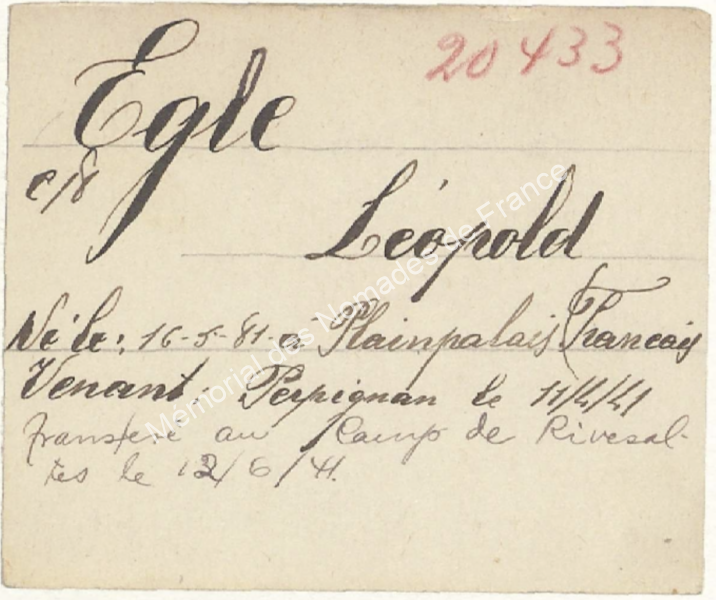 20433
Egle
c/8
Léopold
Né le: 16-5-81 a Plainpalais (Francais
Venant. Perpignan le 11/4/41
transferé au Camp de Rivesal-
tes le 12/6/41.
Memorial des Nomades de France